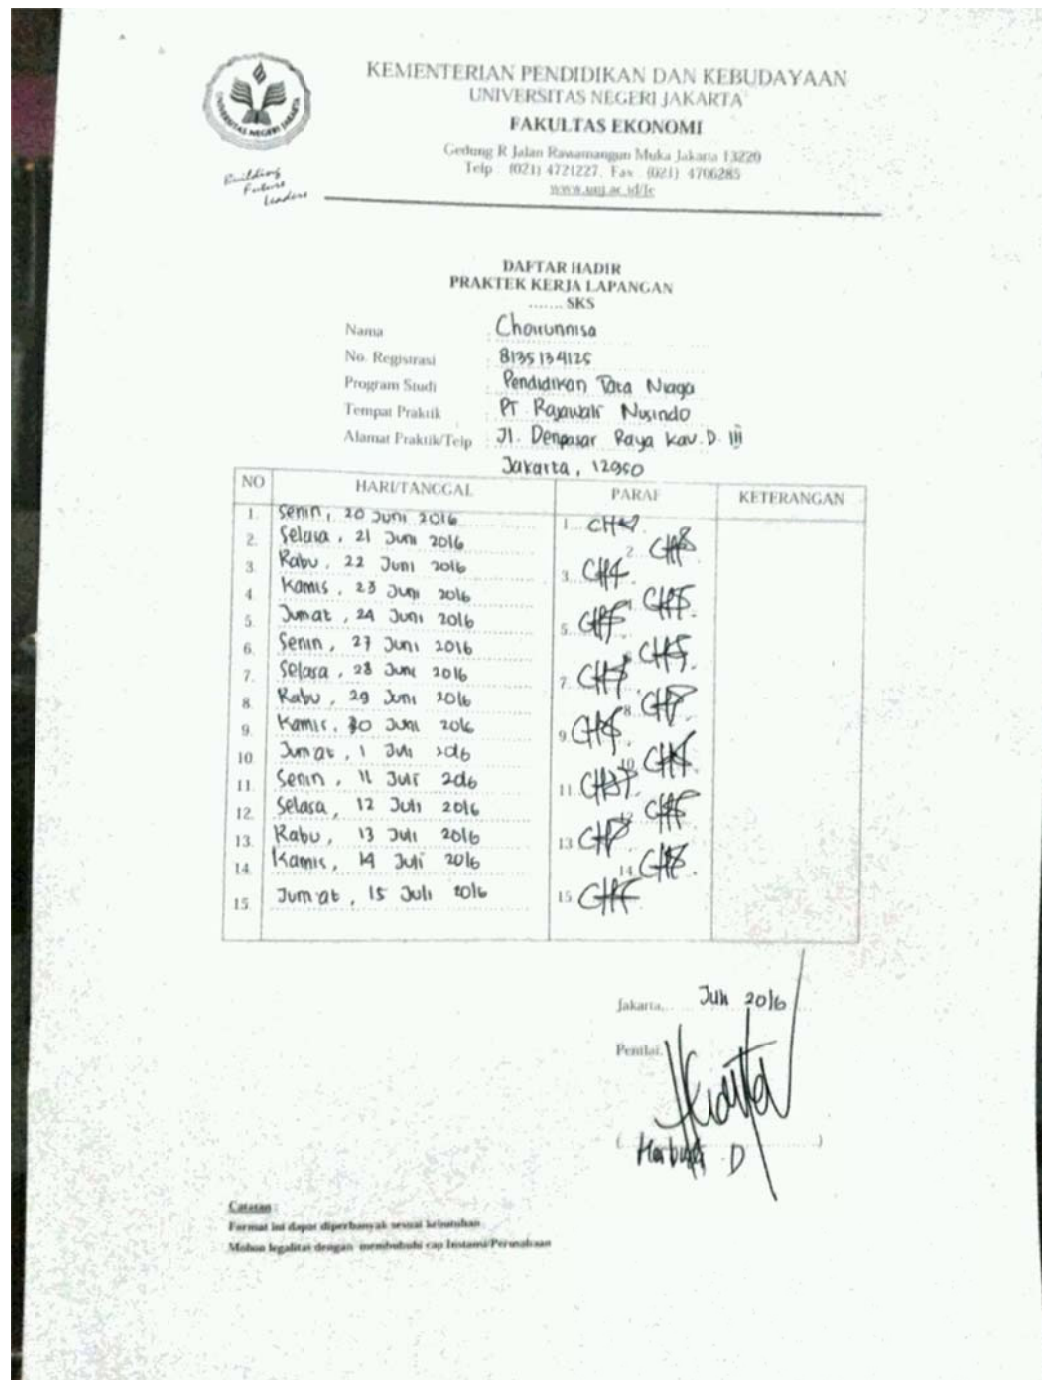 KEMENTERIAN PENDIDIKAN DAN KEBUDAYAAN
UNIVERSITAS NEGERI JAKARTA
FAKULTAS EKONOMI
Gedung R Jalan Rawamangun Muka Jakarta 13220
Telp : (021) 4721227, Fax : (021) 4706285
www.unj.ac.id/fe
UNIVERSITAS NEGERI JAKARTA
Building
Future
Leaders
DAFTAR HADIR
PRAKTEK KERJA LAPANGAN
....... SKS
Nama : Choirunnisa
No. Registrasi : 8135134125
Program Studi : Pendidikan Tata Niaga
Tempat Praktik : PT. Rajawali Nusindo
Alamat Praktik/Telp : Jl. Denpasar Raya Kav. D. III
Jakarta, 12950
NO HARI/TANGGAL PARAF KETERANGAN
1. Senin, 20 Juni 2016 1.
2. Selasa, 21 Juni 2016 2.
3. Rabu, 22 Juni 2016 3.
4. Kamis, 23 Juni 2016
5. Jumat, 24 Juni 2016 5.
6. Senin, 27 Juni 2016
7. Selasa, 28 Juni 2016 7.
8. Rabu, 29 Juni 2016 8.
9. Kamis, 30 Juni 2016 9.
10. Jum'at, 1 Juli 2016 10.
11. Senin, 11 Juli 2016 11.
12. Selasa, 12 Juli 2016 12.
13. Rabu, 13 Juli 2016 13.
14. Kamis, 14 Juli 2016 14.
15. Jum'at, 15 Juli 2016 15.
Jakarta, Juli 2016
Penilai,
( D )
Catatan :
Format ini dapat diperbanyak sesuai kebutuhan
Mohon legalitas dengan membubuhi cap Instansi/Perusahaan